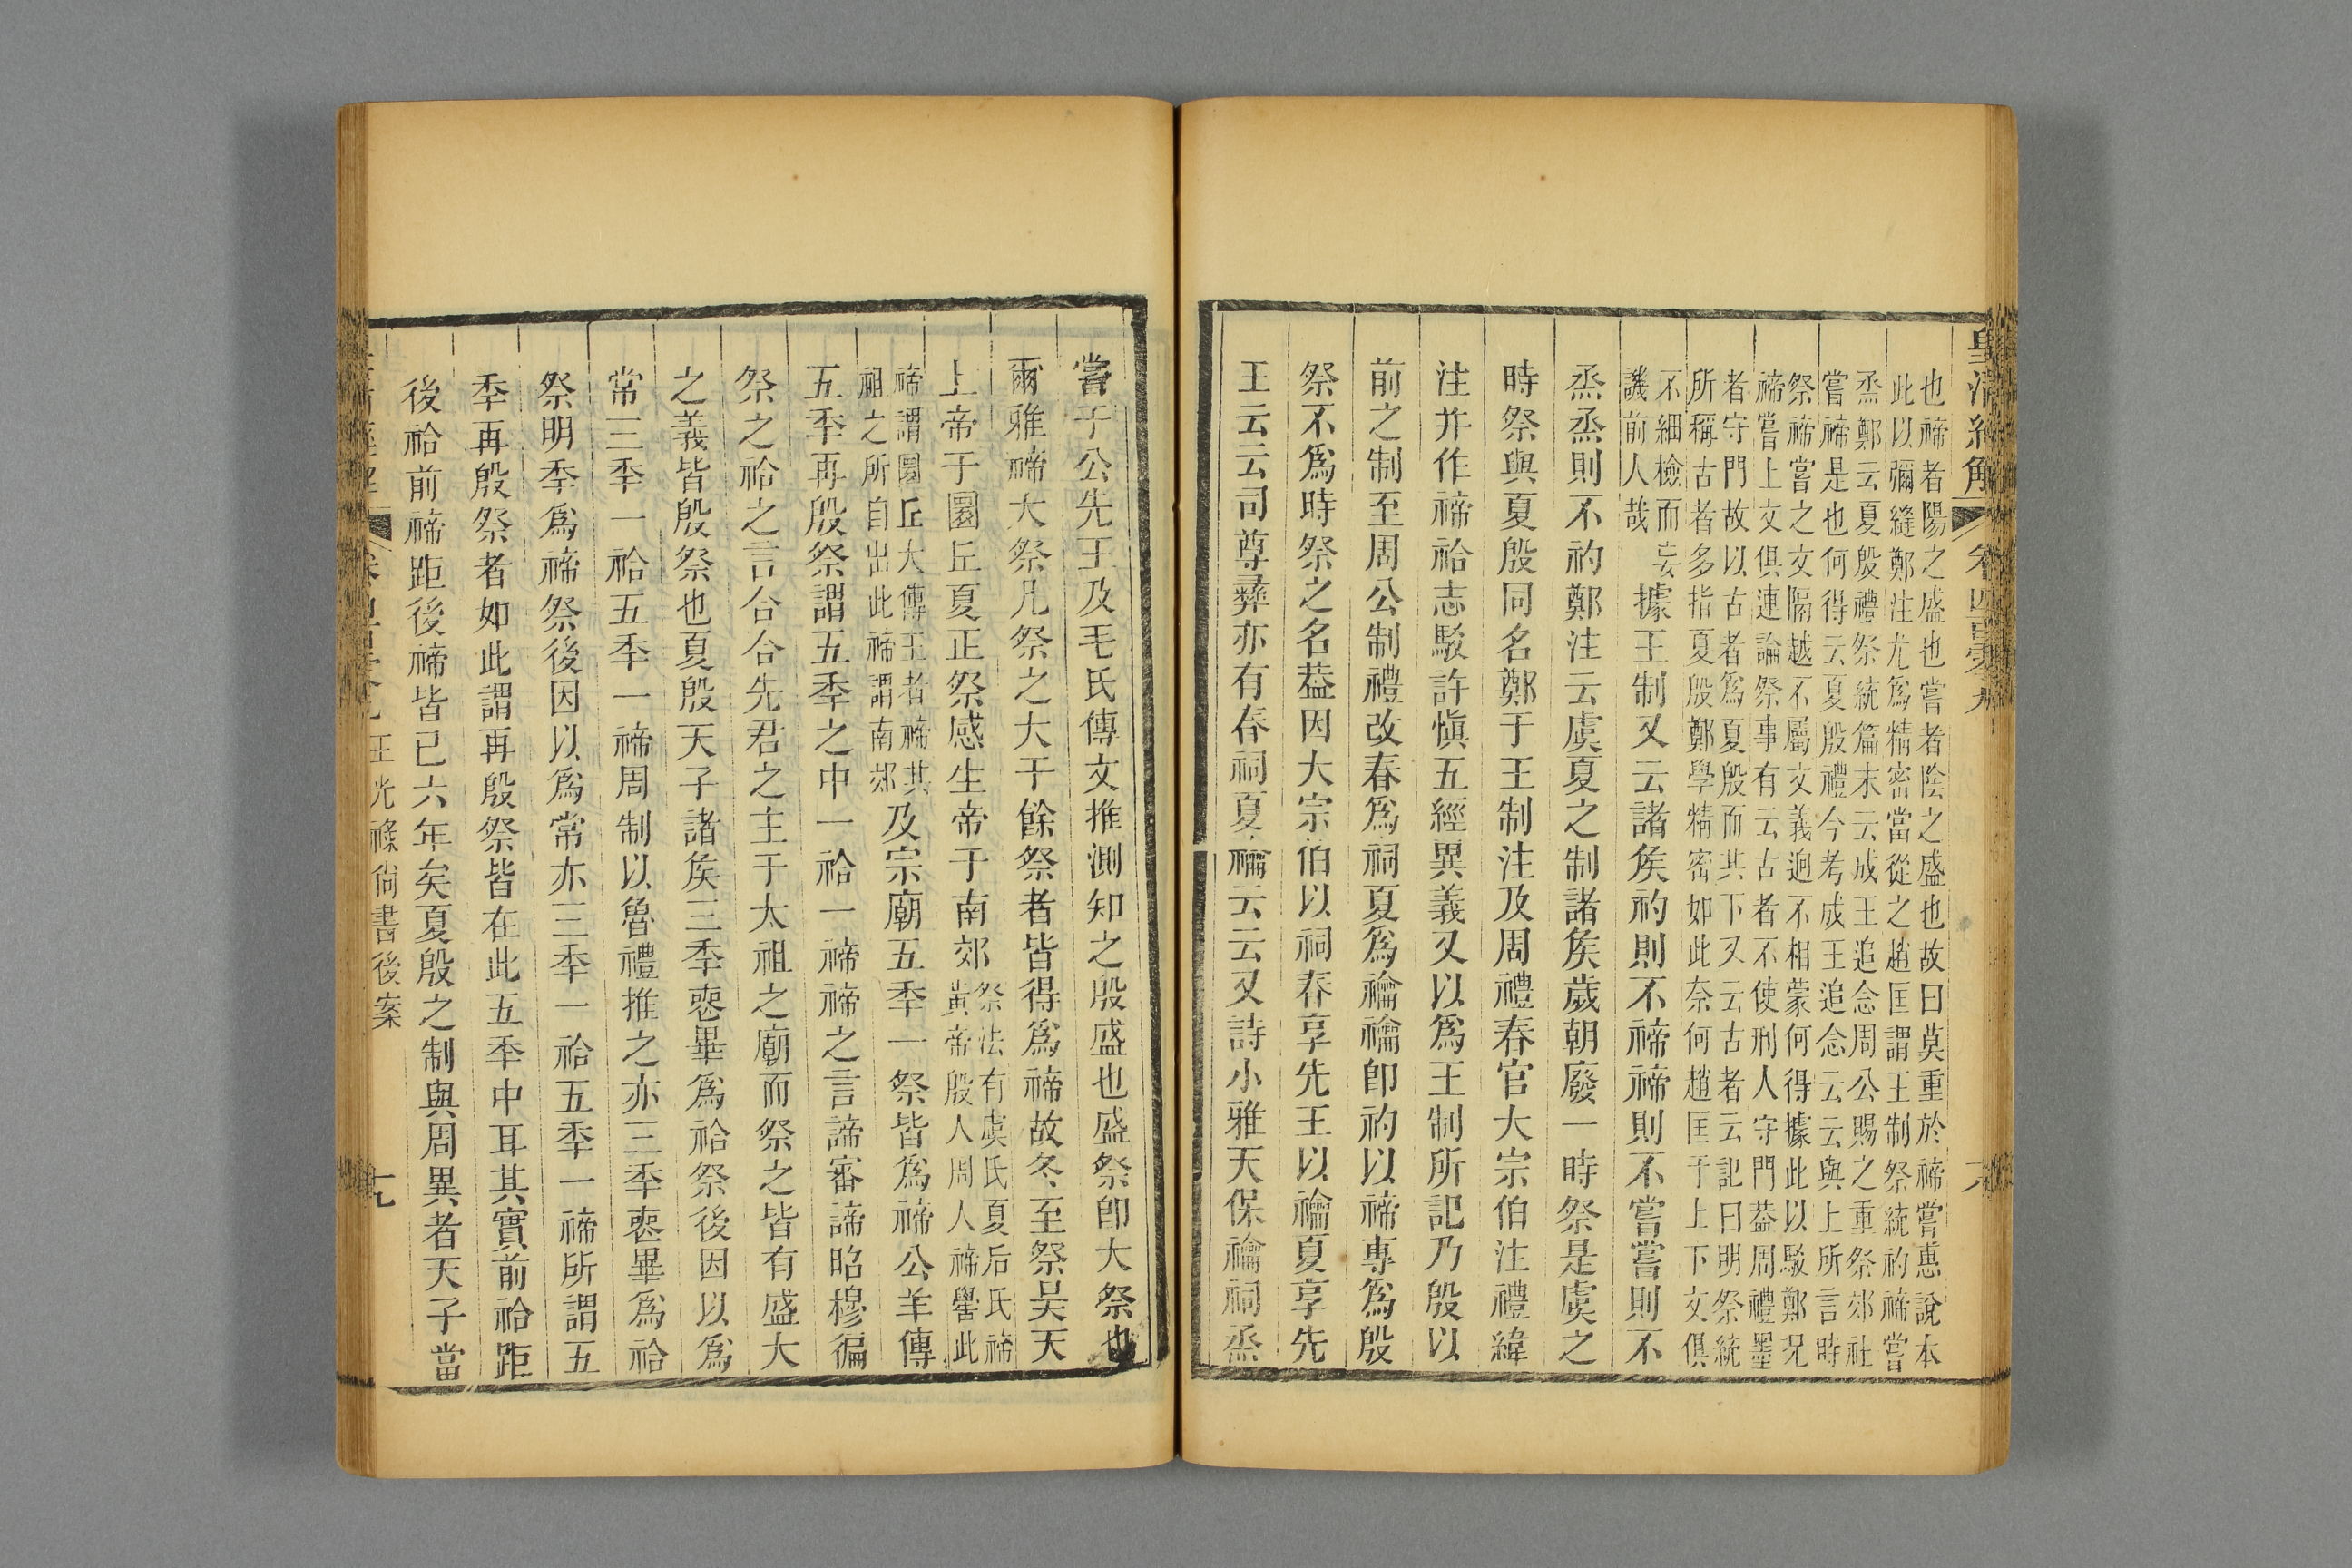 皇清經解
也禘者陽之盛也嘗者陰之盛也故曰莫重於禘嘗惠說本
此以彌縫鄭注尤爲精密當從之趙匡謂王制祭統礿禘嘗
烝鄭云夏殷禮祭統篇末云成王追念周公賜之重祭郊社
嘗禘是也何得云夏殷禮今考成王追念云云與上所言時
祭禘嘗之文隔越不屬文義迥不相蒙何得據此以駁鄭況
禘嘗上文俱連論祭事有云古者不使刑人守門葢周禮墨
者守門故以古者爲夏殷而其下又云古者云記曰明祭統
所稱古者多指夏殷鄭學精密如此奈何趙匡于上下文俱
不細檢而妄
譏前人哉
據王制又云諸矦礿則不禘禘則不嘗嘗則不
烝烝則不礿鄭注云虞夏之制諸矦歲朝廢一時祭是虞之
時祭與夏殷同名鄭于王制注及周禮春官大宗伯注禮緯
注并作禘祫志駁許愼五經異義又以爲王制所記乃殷以
前之制至周公制禮改春爲祠夏爲禴禴卽礿以禘專爲殷
祭不爲時祭之名葢因大宗伯以祠春享先王以禴夏享先
王云云司尊彝亦有春祠夏禴云云又詩小雅天保禴祠烝
嘗于公先王及毛氏傳文推測知之殷盛也盛祭卽大祭也
爾雅禘大祭凡祭之大于餘祭者皆得爲禘故冬至祭昊天
上帝于圜丘夏正祭感生帝于南郊
祭法有虞氏夏后氏禘
黃帝殷人周人禘嚳此
禘謂圜丘大傳王者禘其
祖之所自出此禘謂南郊
及宗廟五秊一祭皆爲禘公羊傳
五秊再殷祭謂五秊之中一祫一禘禘之言諦審諦昭穆徧
祭之祫之言合合先君之主于太祖之廟而祭之皆有盛大
之義皆殷祭也夏殷天子諸矦三秊喪畢爲祫祭後因以爲
常三秊一祫五秊一禘周制以魯禮推之亦三秊喪畢爲祫
祭明秊爲禘祭後因以爲常亦三秊一祫五秊一禘所謂五
秊再殷祭者如此謂再殷祭皆在此五秊中耳其實前祫距
後祫前禘距後禘皆已六年矣夏殷之制與周異者天子當
王光祿尙書後案